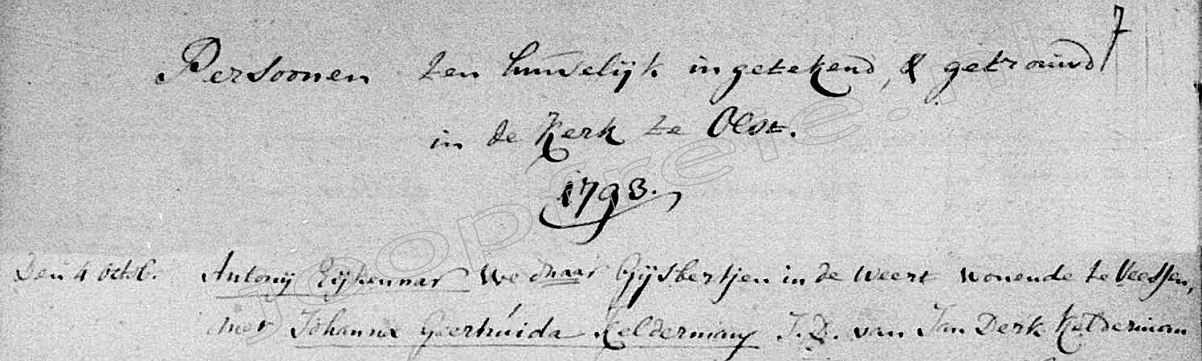 Persoonen ten huwelijk ingetekend, & getrouwd
in de Kerk te Olst.
1793.
Den 4 Octob. Antonij Eijkenaar Wednaar Gijsbertjen in de Weert wonende te Veessen,
met Johanna Geertruida Keldermans J.D. van Jan Derk Kelderman